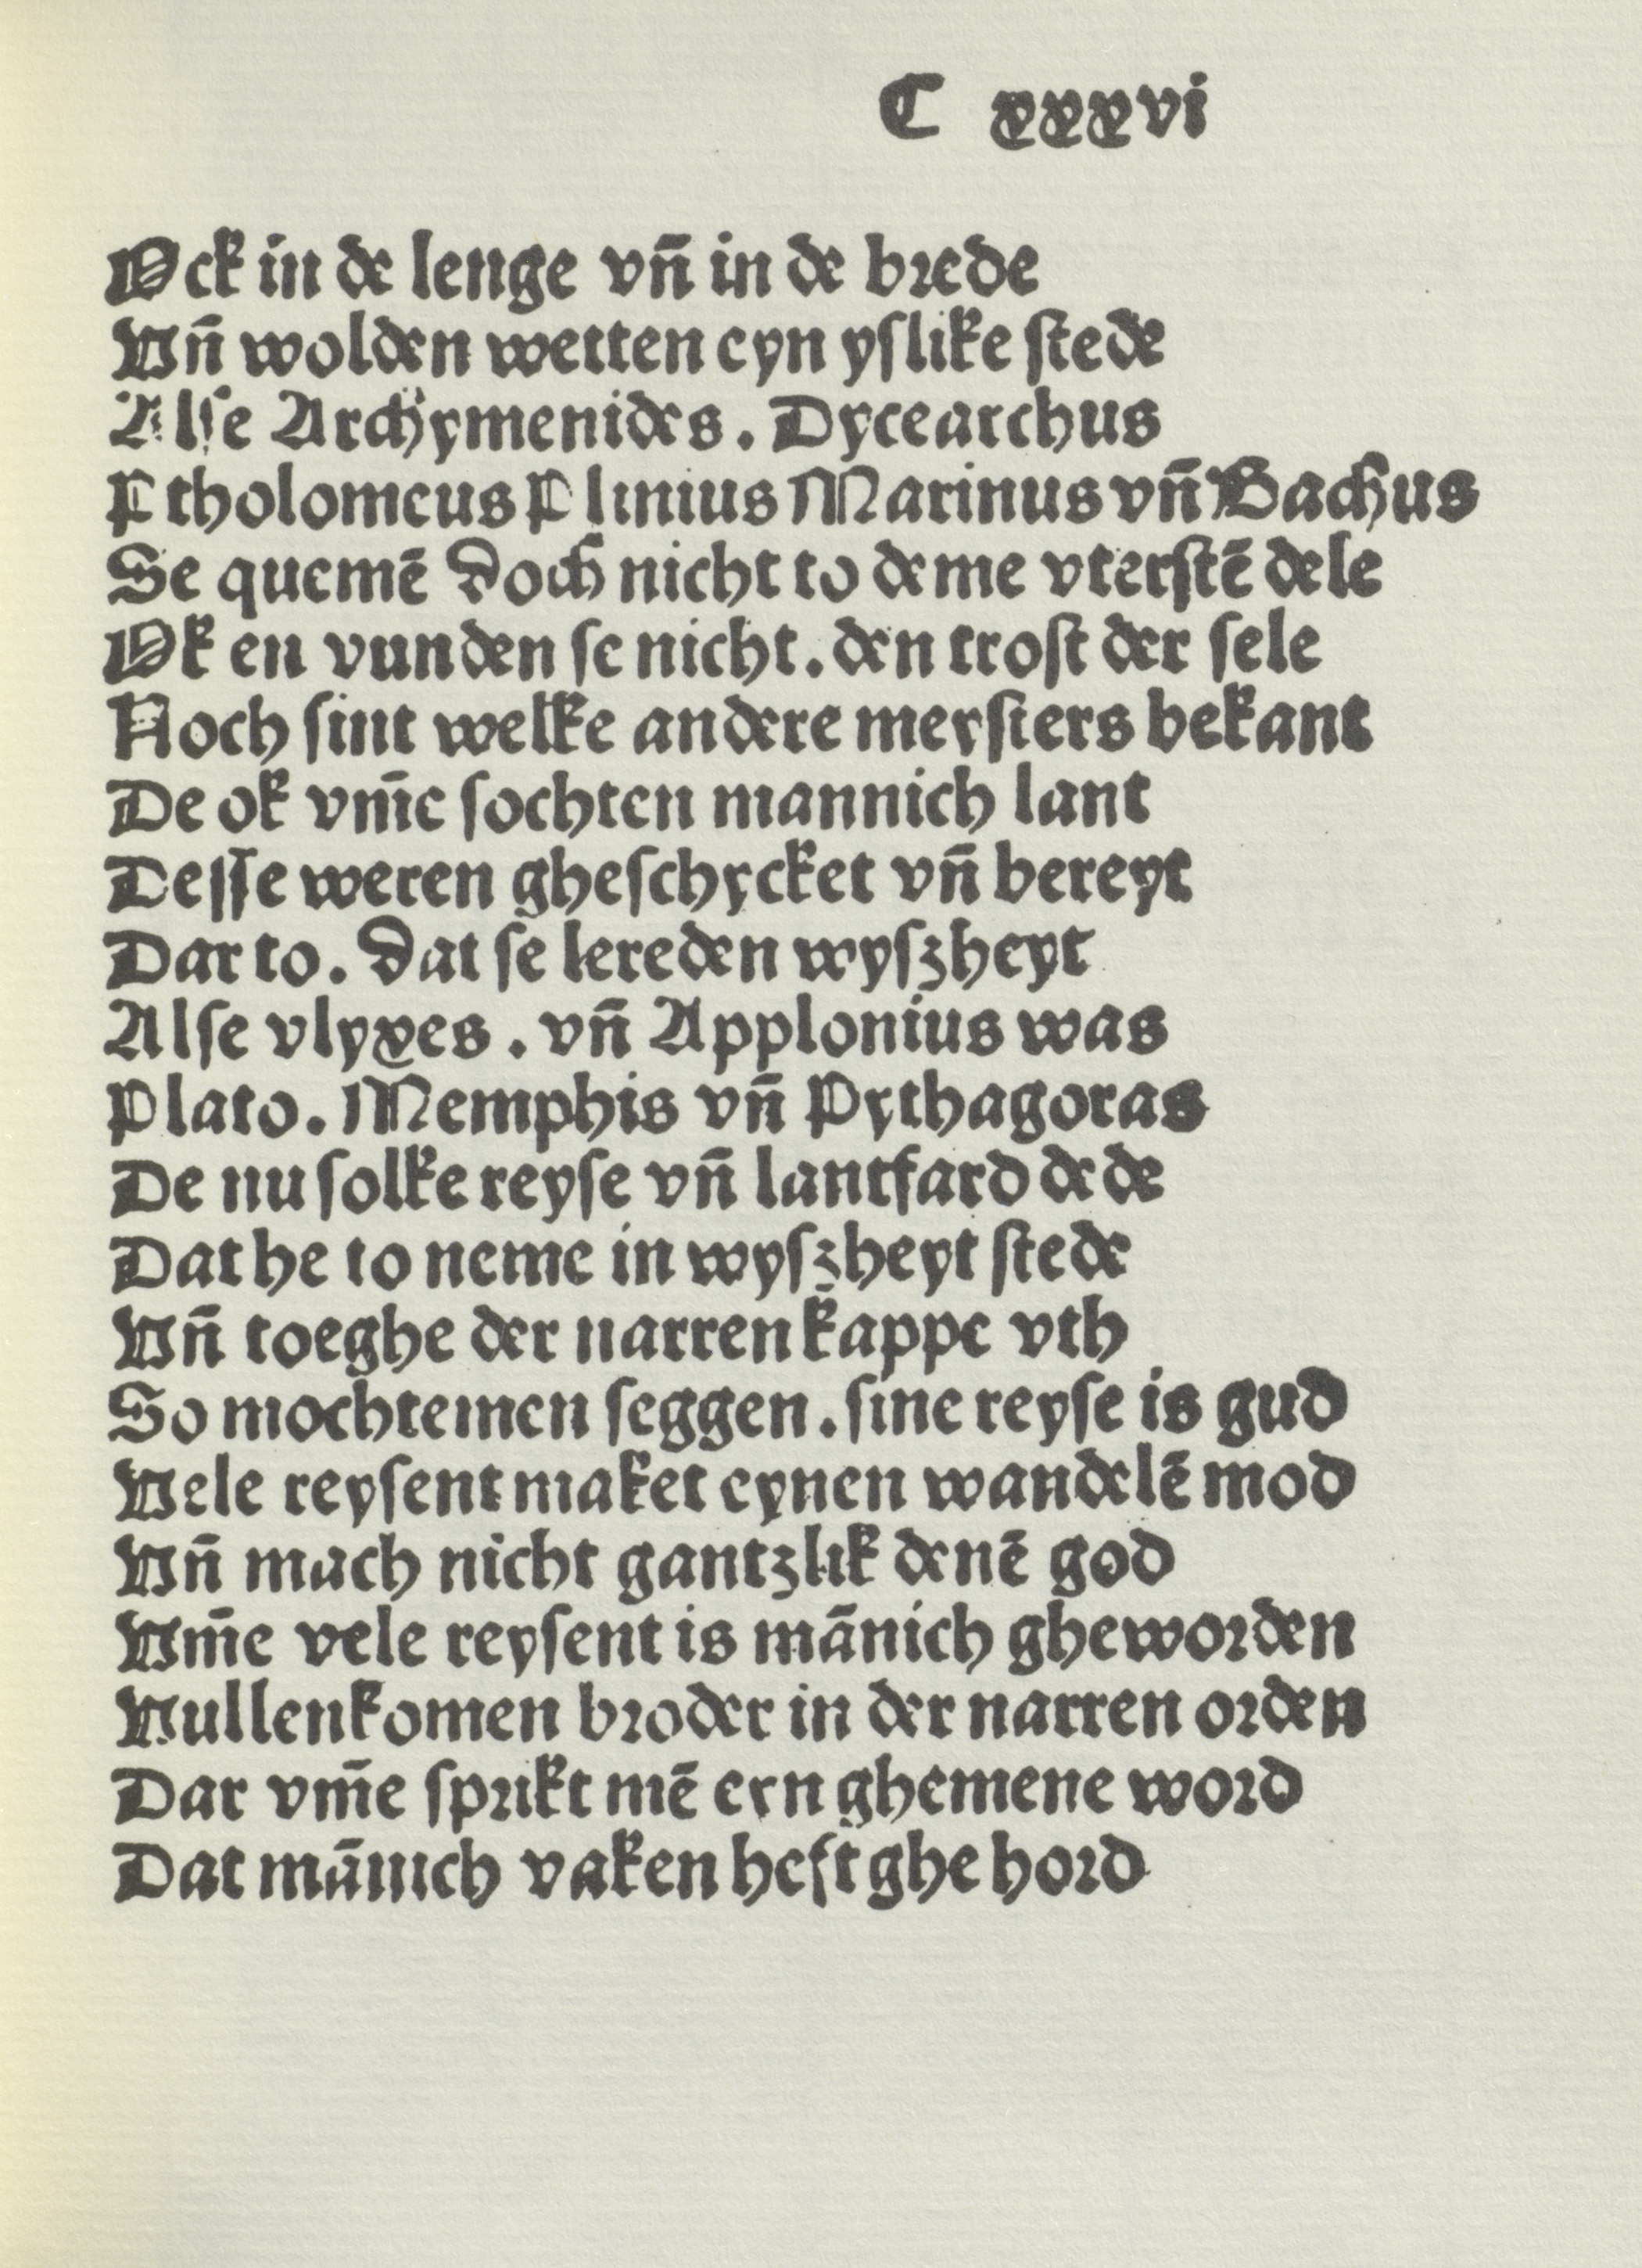 C xxxvi
Ock in de lenge vn̄ in de brede
Vn̄ wolden wetten eyn yſlike ſtede
Alſe Archymenides. Dycearchus
Ptholomeus Plinius Marinus vn̄ Bachus
Se quemē doch nicht to deme vterſtē dele
Ok en vunden ſe nicht. den troſt der ſele
Noch ſint welke andere meyſters bekant
De ok vm̄e ſochten mannich lant
Deſſe weren gheſchycket vn̄ bereyt
Dar to. dat ſe lereden wyſzheyt
Alſe vlyxes. vn̄ Applonius was
Plato. Memphis vn̄ Pythagoras
De nu ſolke reyſe vn̄ lantfard dede
Dat he to neme in wyſzheyt ſtede
Vn̄ toeghe der narren kappe vth
So mochtemen ſeggen. ſine reyſe is gud
Vele reyſent maket eynen wandelē mod
Vn̄ mach nicht gantzlik denē god
Vm̄e vele reyſent is mānich gheworden
Vullenkomen broder in der narren orden
Dar vm̄e ſprikt mē eyn ghemene word
Dat mānich vaken heft ghe hord